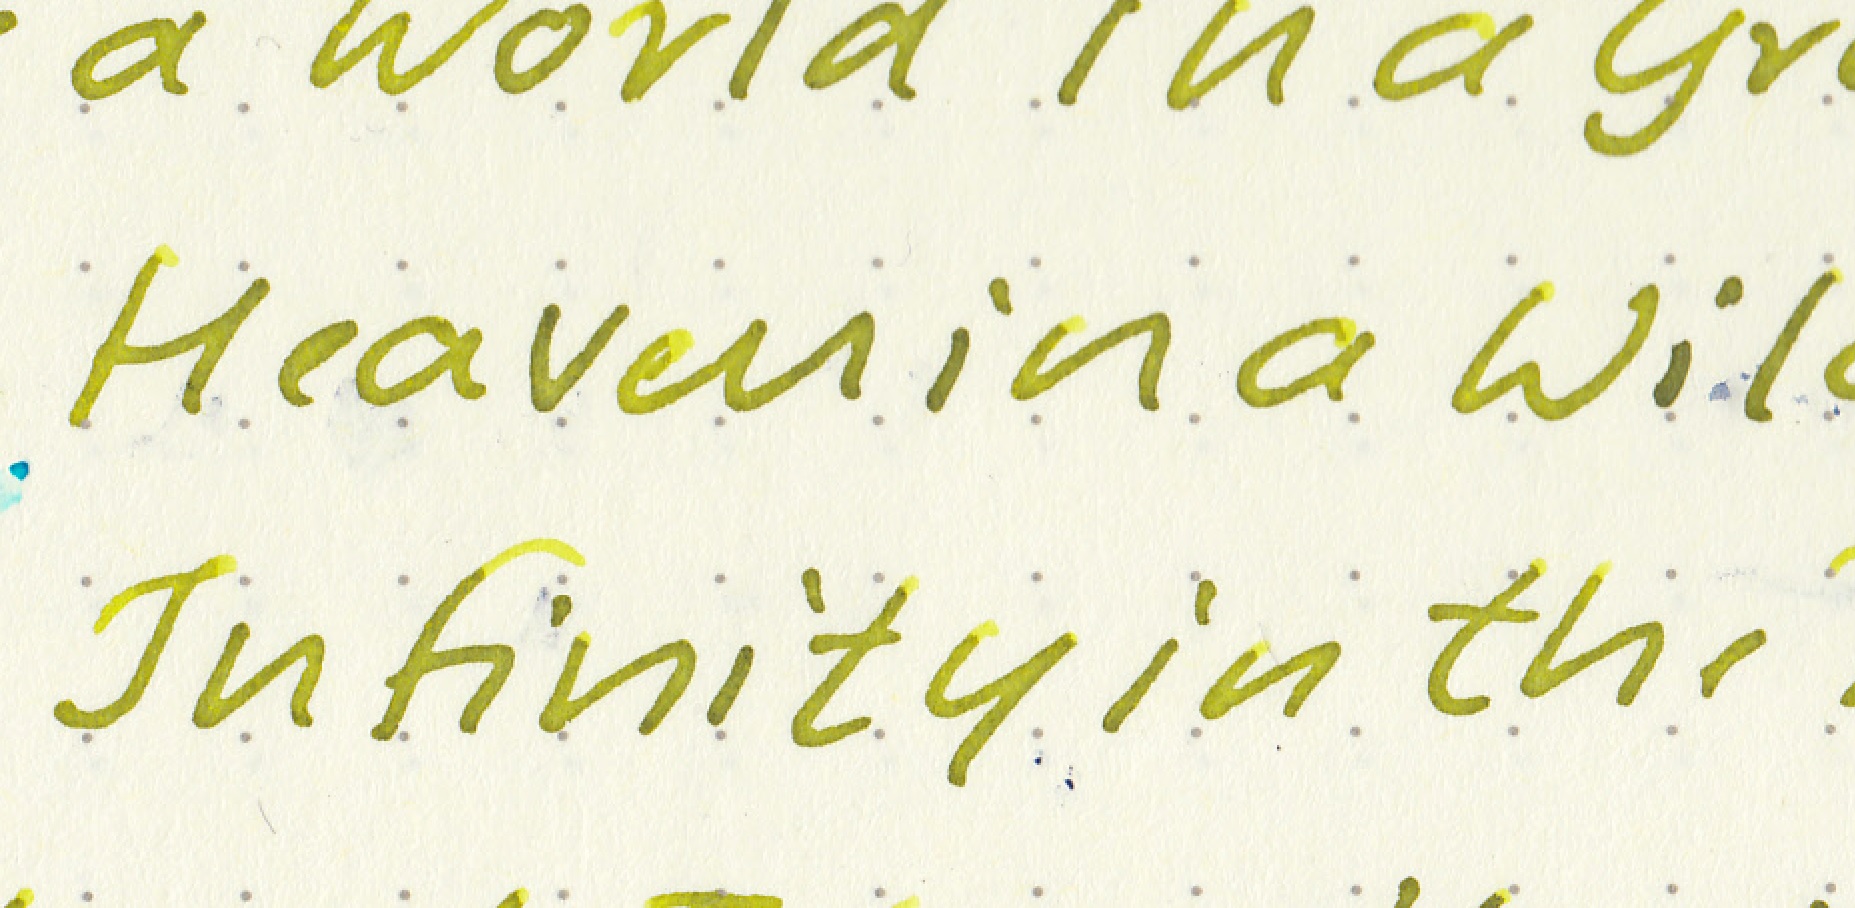 a World in a Gra
Heaven in a Wild
Infinity in the